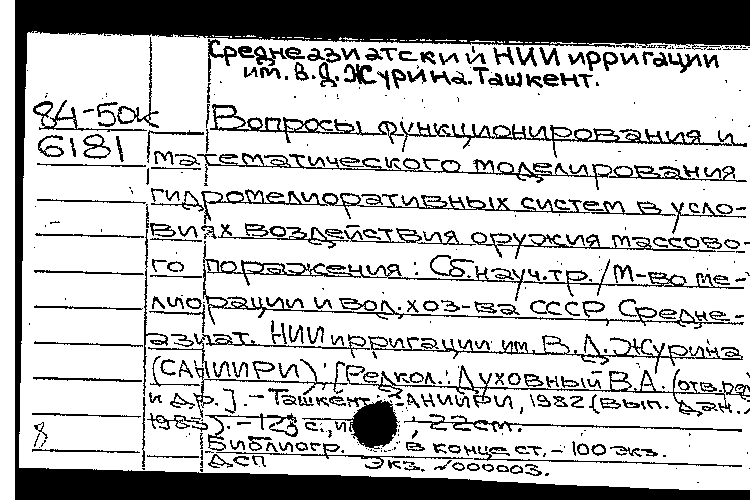 Среднеазиатский НИИ ирригации
им. В.Д. Журина. Ташкент.
84-50к
Вопросы функционирования и
6181
математического моделирования
гидромелиоративных систем в усло-
виях воздействия оружия массово-
го поражения: Сб. науч. тр. / М-во ме-
лиорации и вод. хоз-ва СССР, Средне-
азиат. НИИ ирригации им. В.Д. Журина
(САНИИРИ); [Редкол.: Духовный В.А. (отв. ред.)
и др.]. - Ташкент: САНИИРИ, 1982 (вып. дан.
1983). - 123 с., ; 22 см.
8
Библиогр. в конце ст. - 100 экз.
ДСП экз. №000003.